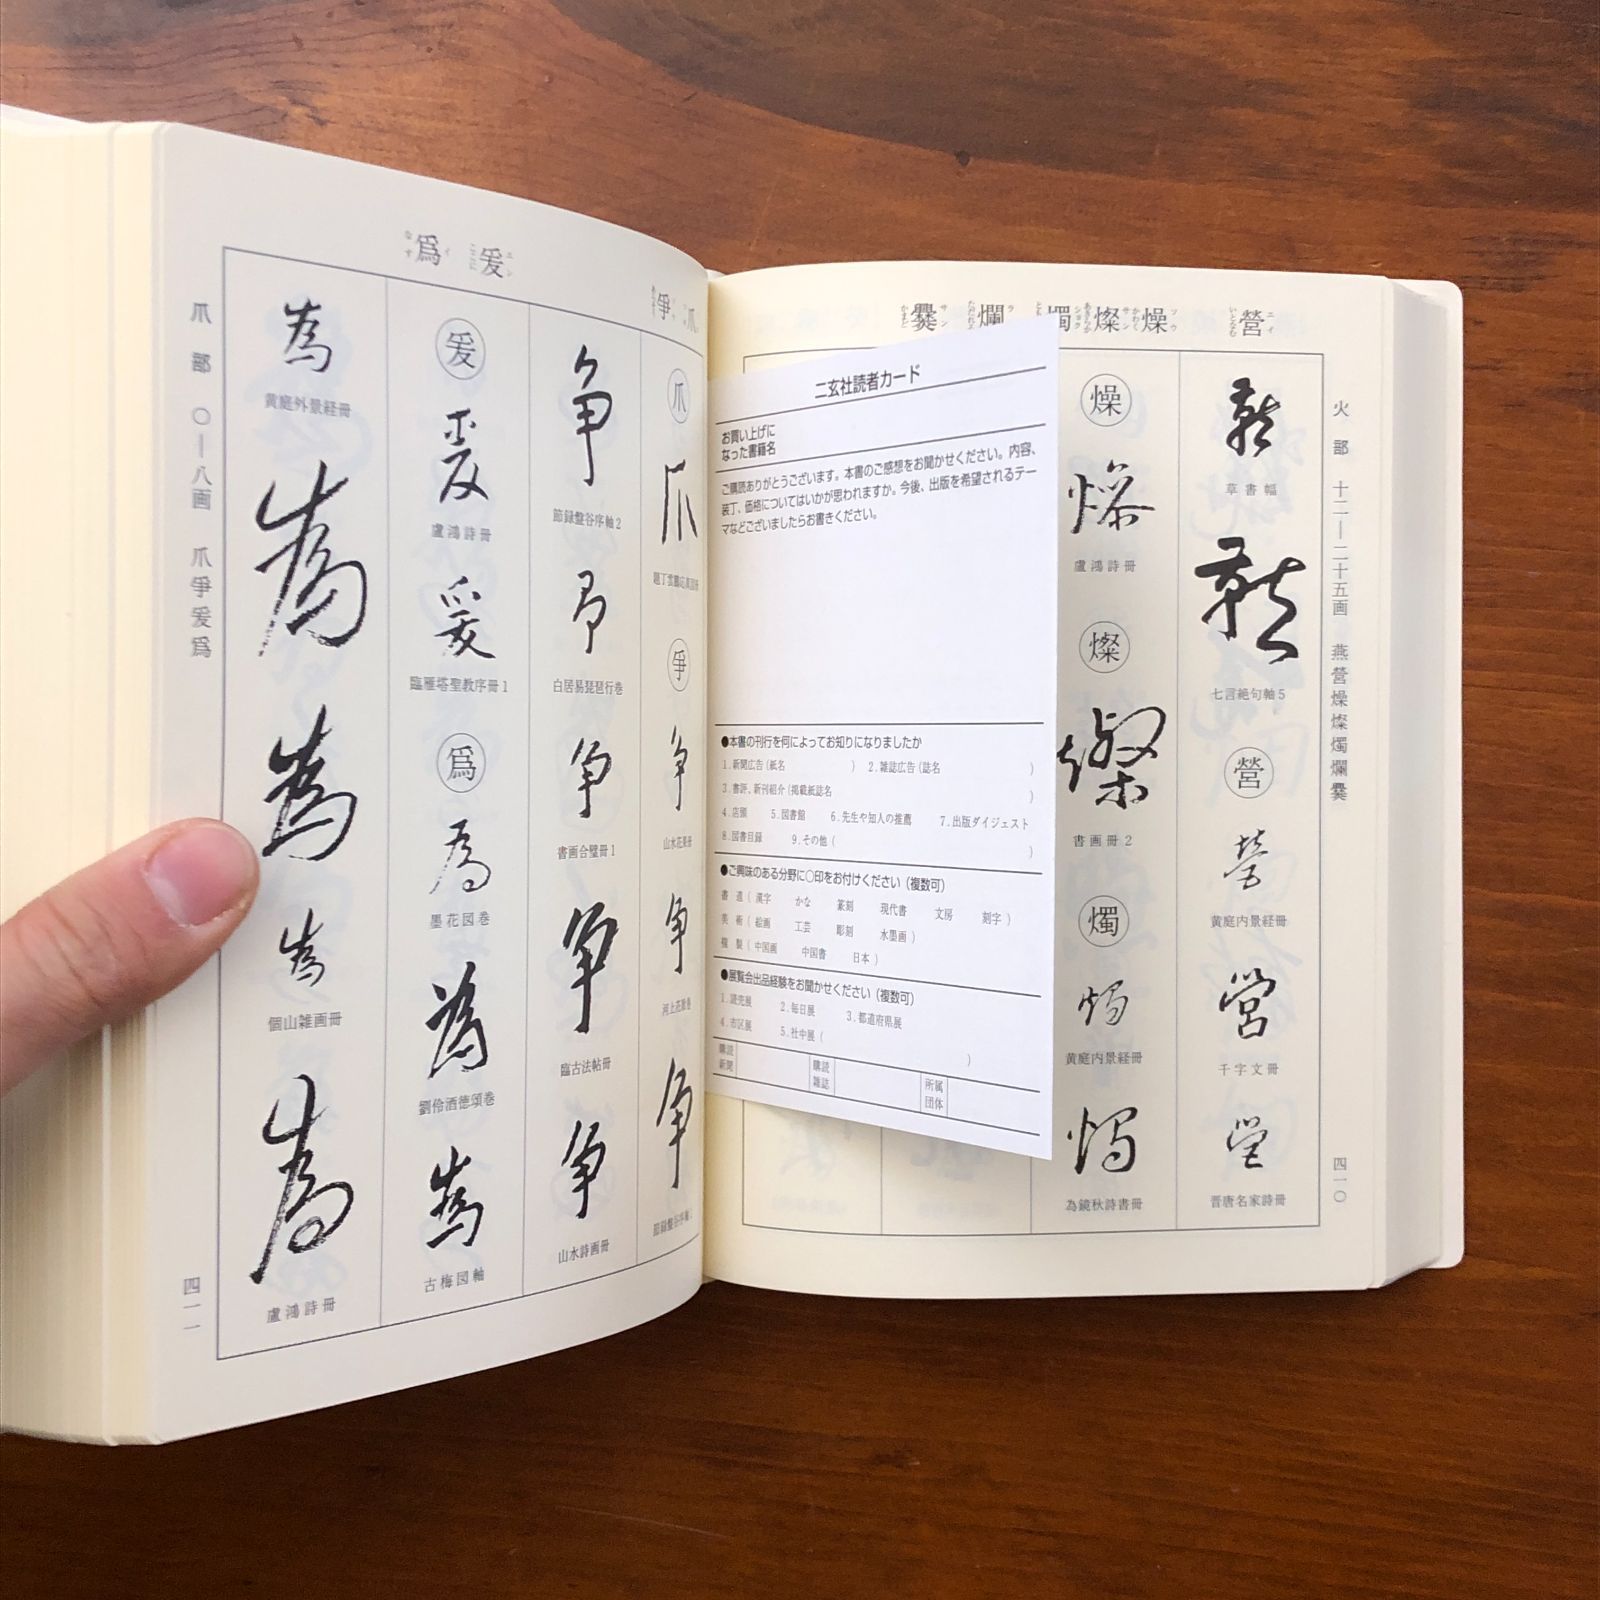 火部 十二―二十五画 燕營燥燦燭爛爨
四一〇
營 エイ いとなむ
燥 ソウ かわく
燦 サン あきらか
燭 ショク
爛 ラ
爨 サン かまど
草書幅
七言絶句軸5
營
黄庭内景経冊
千字文冊
晋唐名家詩冊
燥
盧鴻詩冊
燦
書画冊2
燭
黄庭内景経冊
為鏡秋詩書冊
二玄社読者カード
お買い上げに
なった書籍名
ご購読ありがとうございます。本書のご感想をお聞かせください。内容、
装丁、価格についてはいかが思われますか。今後、出版を希望されるテー
マなどございましたらお書きください。
●本書の刊行を何によってお知りになりましたか
1.新聞広告(紙名 ) 2.雑誌広告(誌名 )
3.書評、新刊紹介(掲載紙誌名 )
4.店頭 5.図書館 6.先生や知人の推薦 7.出版ダイジェスト
8.図書目録 9.その他( )
●ご興味のある分野に○印をお付けください（複数可）
書道(漢字 かな 篆刻 現代書 文房 刻字)
美術(絵画 工芸 彫刻 水墨画)
複製(中国画 中国書 日本)
●展覧会出品経験をお聞かせください（複数可）
1.読売展 2.毎日展 3.都道府県展
4.市区展 5.社中展( )
購読新聞 購読雑誌 所属団体
爪
爭
爰 エン
爲 イ なす
爪
爭
山水花果冊
河上花歌巻
節録盤谷序軸1
争
節録盤谷序軸2
白居易琵琶行巻
争
書画合璧冊1
争
臨古法帖冊
争
山水詩画冊
爰
盧鴻詩冊
臨雁塔聖教序冊1
爲
墨花図巻
為
劉伶酒徳頌巻
古梅図軸
為
黄庭外景経冊
為
為
為
個山雑画冊
為
盧鴻詩冊
爪部 〇―八画 爪爭爰爲
四一一